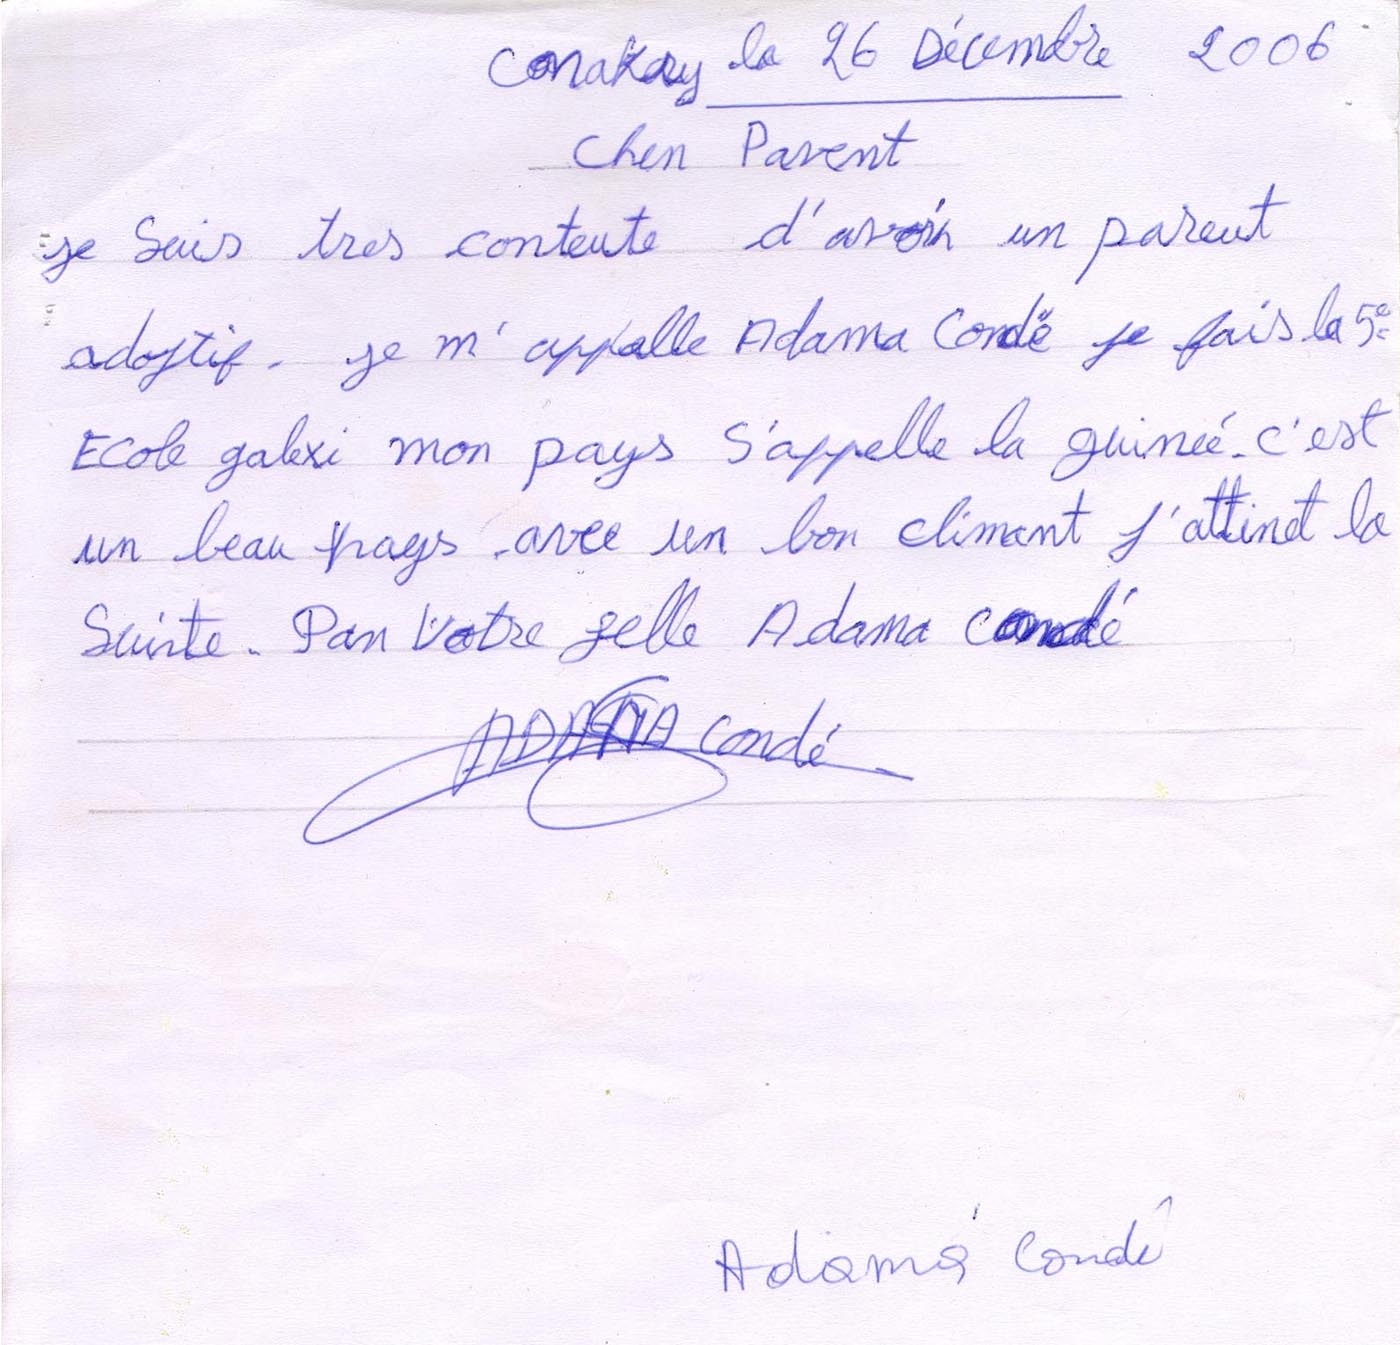 Conakry la 26 Décembre 2006
Chen Parent
je Suis tres contente d'avoir un parent
adoptif. je m'appalle Adama Condé je fais la 5e
Ecole galexi mon pays S'appelle la guineé. c'est
un beau pays avec un bon climant j'attinet la
Suinte. Pan Votre felle Adama condé
ADAMA Condé
Adama Condé